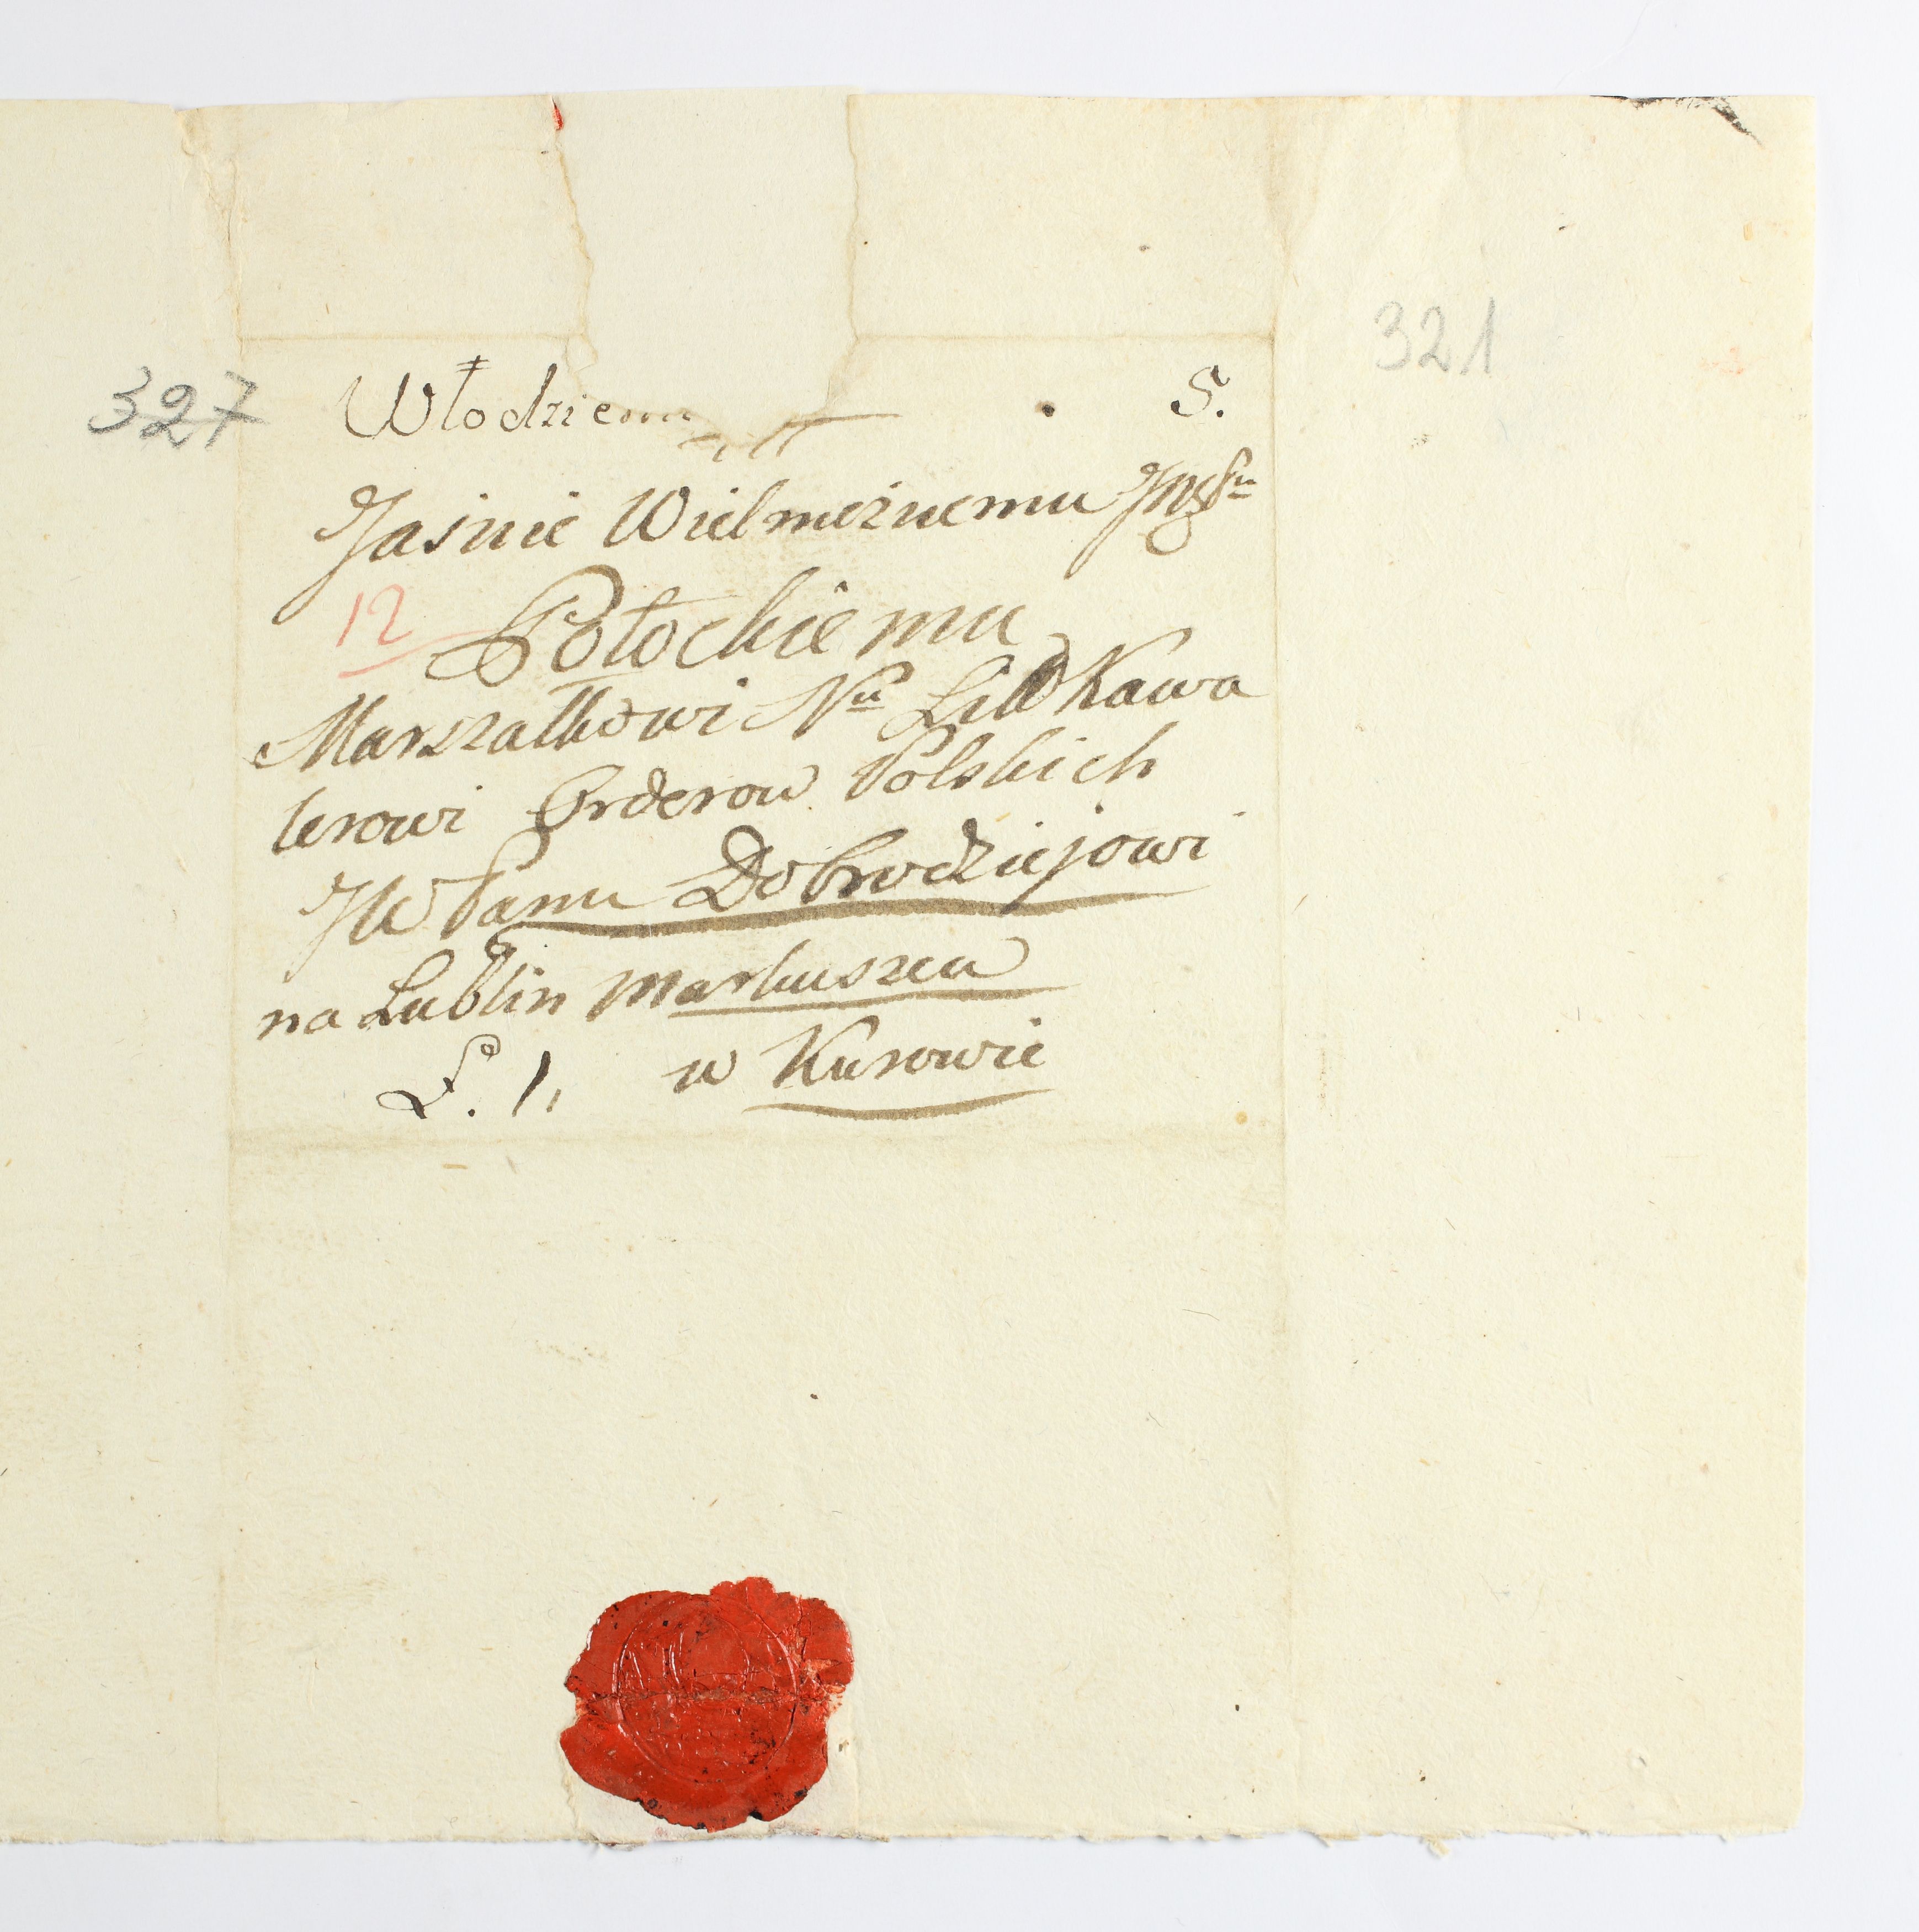 321
327 Włodziem S.
Jaśnie Wielmożnemu
12 Potockiemu
Marszałkowi Nu Lit Kawa
lerowi Orderow Polskich
JW Panu Dobrodziejowi
na Lublin Markuszew
w Kurowie